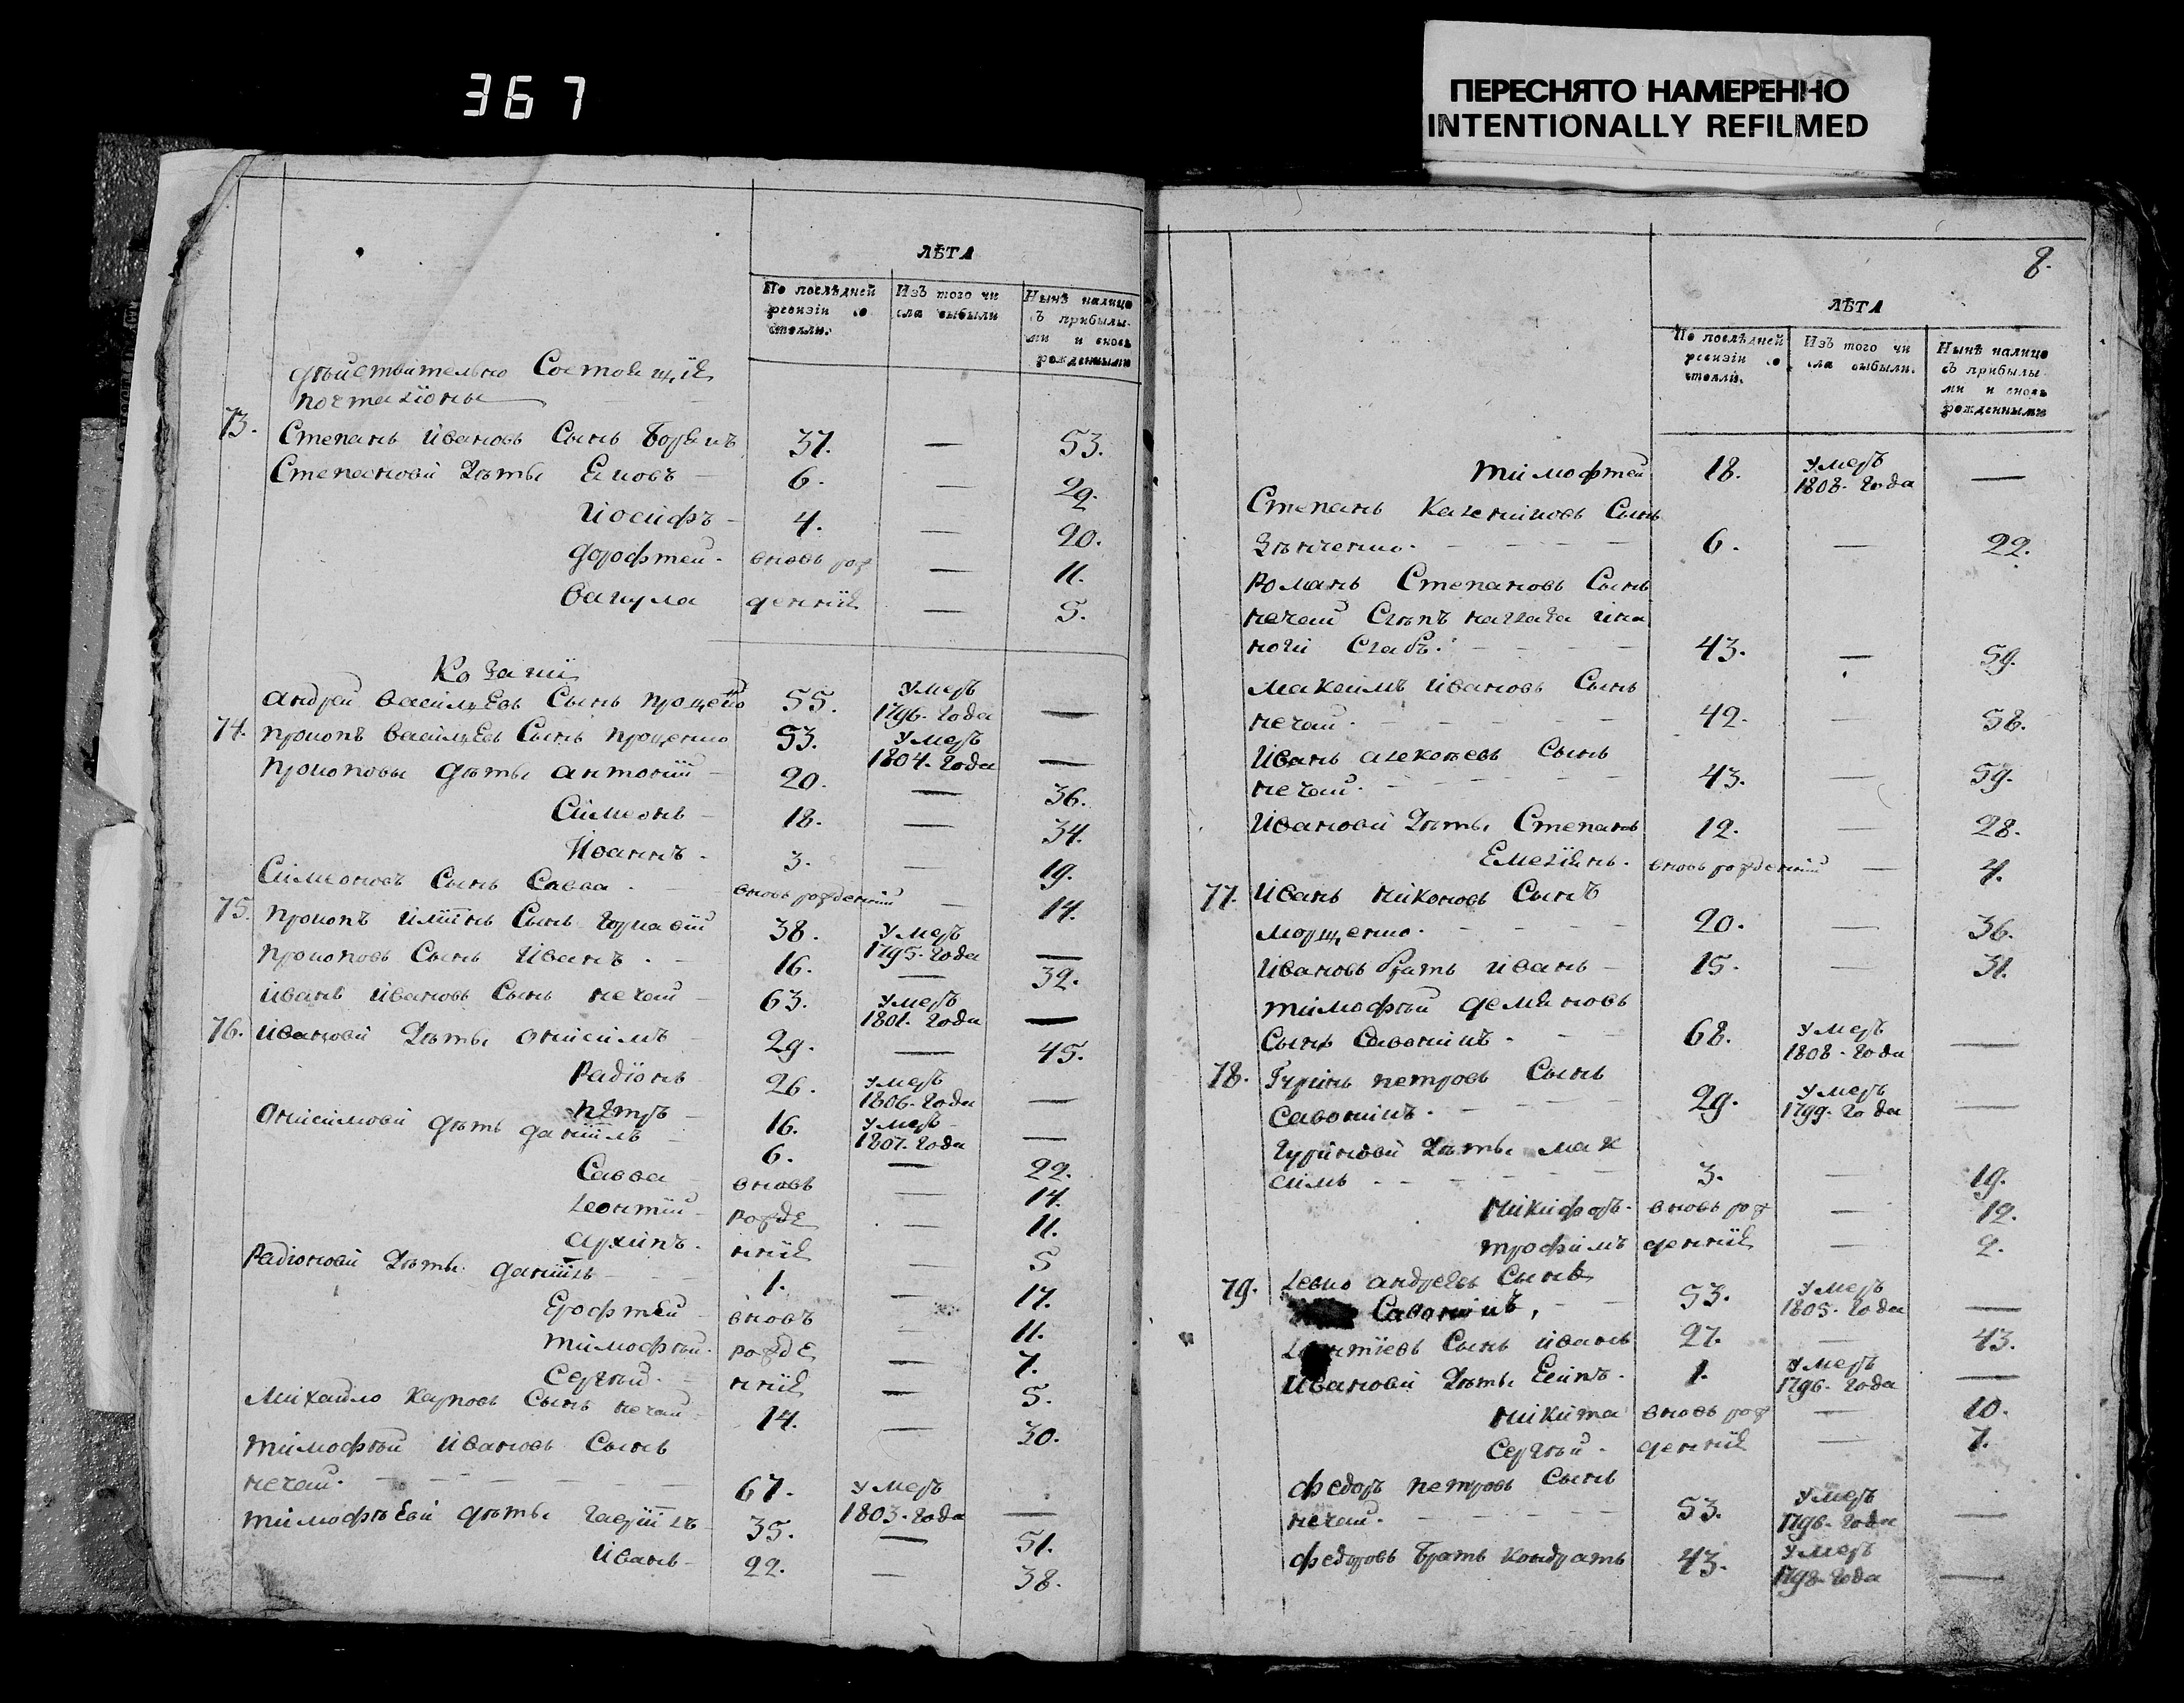 367
ПЕРЕСНЯТО НАМЕРЕННО
INTENTIONALLY REFILMED
ЛѢТА
По послѣдней ревизіи состояли.
Изъ того числа выбыли
Нынѣ налицо съ прибылыми и вновь рожденными
дѣйствително Состоящія
почталіоны
73. Степанъ ивановъ Сынъ 37. — 53.
Степановы дѣты Яковъ 6. — 29.
иосифъ 4. — 20.
дорофтей вновь рож — 11.
вакула денніе — 5.
Козаки
андрей василцевъ Сынъ проценко 55. умеръ 1796. года —
74. прокопъ василцевъ Сынъ проценко 53. умеръ 1804. года —
прокоповы дѣты антоній 20. — 36.
Симеонъ 18. — 34.
Иваннъ 3. — 19.
Симеоновъ Сынъ Савва вновь рожденній — 14.
75. прокопъ Сынъ 38. умеръ 1795. года —
прокоповъ Сынъ иванъ 16. — 32.
иванъ ивановъ Сынъ нечай 63. умеръ 1801. года —
76. ивановы дѣты онисимъ 29. — 45.
Радіонъ 26. умеръ 1806. года —
петръ 16. умеръ 1807. года —
онисимовы дѣты даніилъ 6. — 22.
Савва вновь — 14.
леонтій рожде — 11.
архипъ нніе — 5
Радіоновы дѣты даніилъ 1. — 17.
Ерофтей вновъ — 11.
тимофѣй рожде — 7.
Сергѣй нніе — 5.
Михайло карповъ Сынъ нечай 14. — 30.
тимофѣй ивановъ Сынъ
нечай 67. умеръ 1803. года —
тимофѣевы дѣты гавріилъ 35. — 51.
иванъ 22. — 38.
8.
ЛѢТА
По послѣдней ревизіи состояли.
Изъ того числа выбыли.
Нынѣ налицо съ прибылыми и вновь рожденными
тимофтей 18. умеръ 1808. года —
Степанъ калениковъ Сынъ
6. — 22.
романъ Степановъ Сынъ
нечай Слѣпъ на глаза ина
ноги Слабъ 43. — 59.
максимъ ивановъ Сынъ
нечай 42. — 58.
иванъ алексѣевъ Сынъ
нечай 43. — 59.
ивановы дѣты Степанъ 12. — 28.
Емеліянъ вновь рожденній — 4.
77. иванъ никоновъ Сынъ
морщенко 20. — 36.
ивановъ братъ иванъ 15. — 31.
тимофѣй демяновъ
Сынъ Савоникъ 68. умеръ 1808. года —
78. Гуринъ петровъ Сынъ
Савоникъ 29. умеръ 1799. года —
гуриновы дѣты мак
симъ 3. — 19.
никифоръ вновь рож — 12.
трофимъ денніе — 2.
79. левко андреевъ Сынъ
Савоникъ 53. умеръ 1805. года —
леонтіевъ Сынъ иванъ 27. — 43.
ивановы дѣты Есипъ 1. умеръ 1796. года —
никита вновь рож — 10.
Сергѣй денніе — 7.
федоръ петровъ Сынъ
нечай 53. умеръ 1796. года —
федоровъ братъ кондратъ 43. умеръ 1798. года —